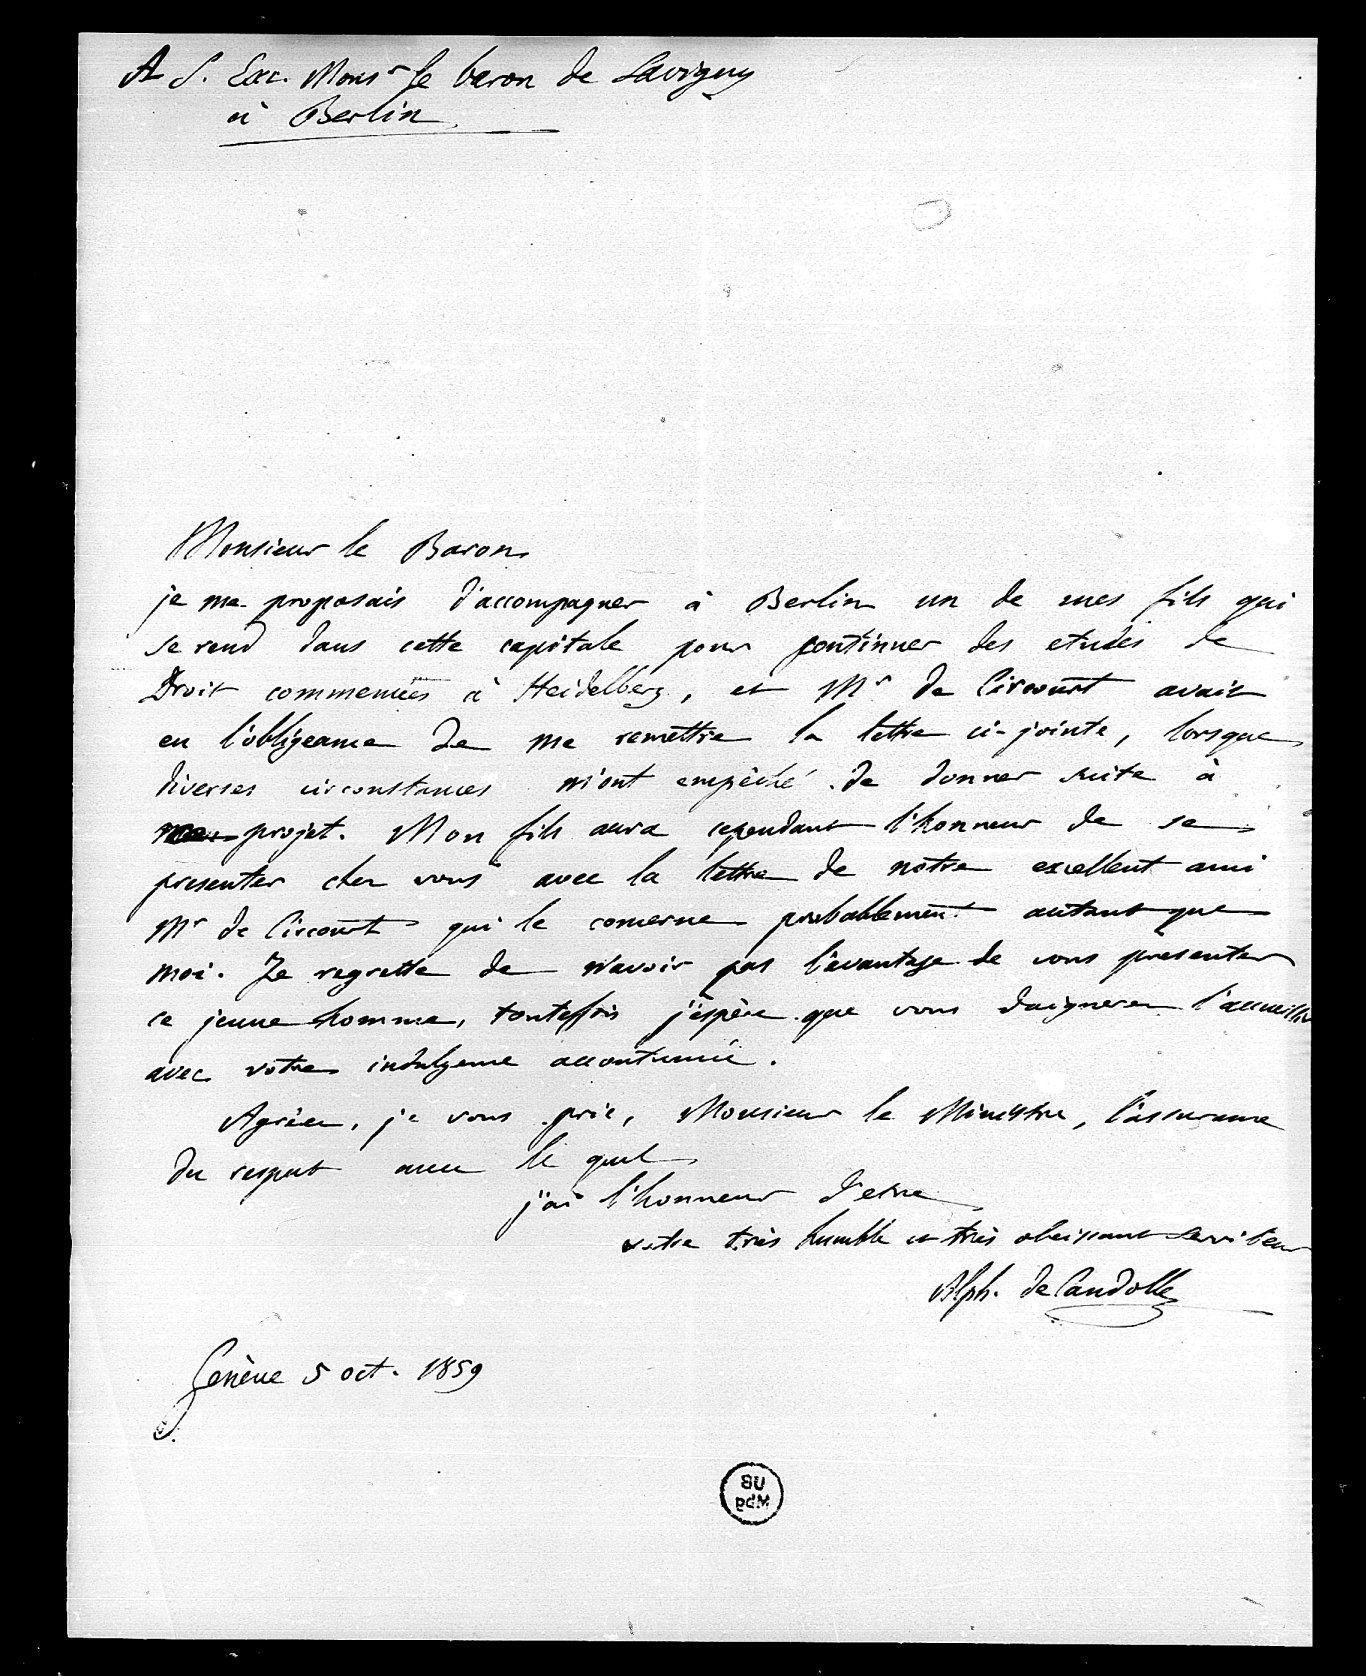 A S. Exc. Monsr le baron de Savigny
à Berlin
Monsieur le Baron
je me proposais d'accompagner à Berlin un de mes fils qui
se rend dans cette capitale pour continuer des etudes de
Droit commencées à Heidelberg, et Mr de Circourt avait
eu l'obligeance de me remettre la lettre ci-jointe, lorsque
diverses circonstances m'ont empêché de donner suite à
mon projet. Mon fils aura cependant l'honneur de se
presenter chez vous avec la lettre de notre excellent ami
Mr de Circourt qui le concerne probablement autant que
moi. Je regrette de n'avoir pas l'avantage de vous presenter
ce jeune homme, toutefois j'espère que vous daignerez l'accueillir
avec votre indulgence accoutumée.
Agréez, je vous prie, Monsieur le Ministre, l'assurance
du respect avec le quel
j'ai l'honneur d'etre
votre très humble et très obeissant serviteur
Alph. de Candolle
Genève 5 oct. 1859
UB
Mbg